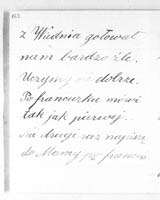 z Wiednia gotował
nam bardzo źle.
Uczymy się dobrze.
Po francusku mówi
tak jak pierwej.
Na drugi raz napiszę
do Mamy po francu